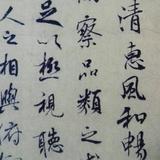 清惠風和暢
察品類之盛
足以極視聽
人之相與俯